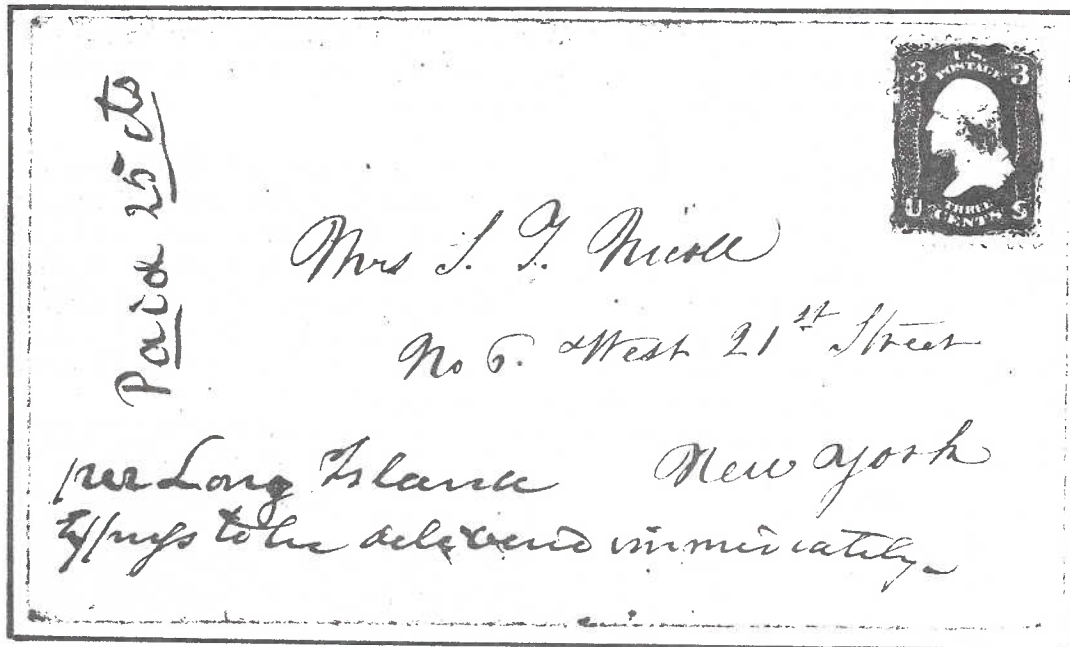 Paid 25 cts
U.S.
POSTAGE
3 3
THREE
CENTS
U S
Mrs S. T. Nicoll
No 6. West 21st Street
New York
per Long Island
Express to be delivered immediately.